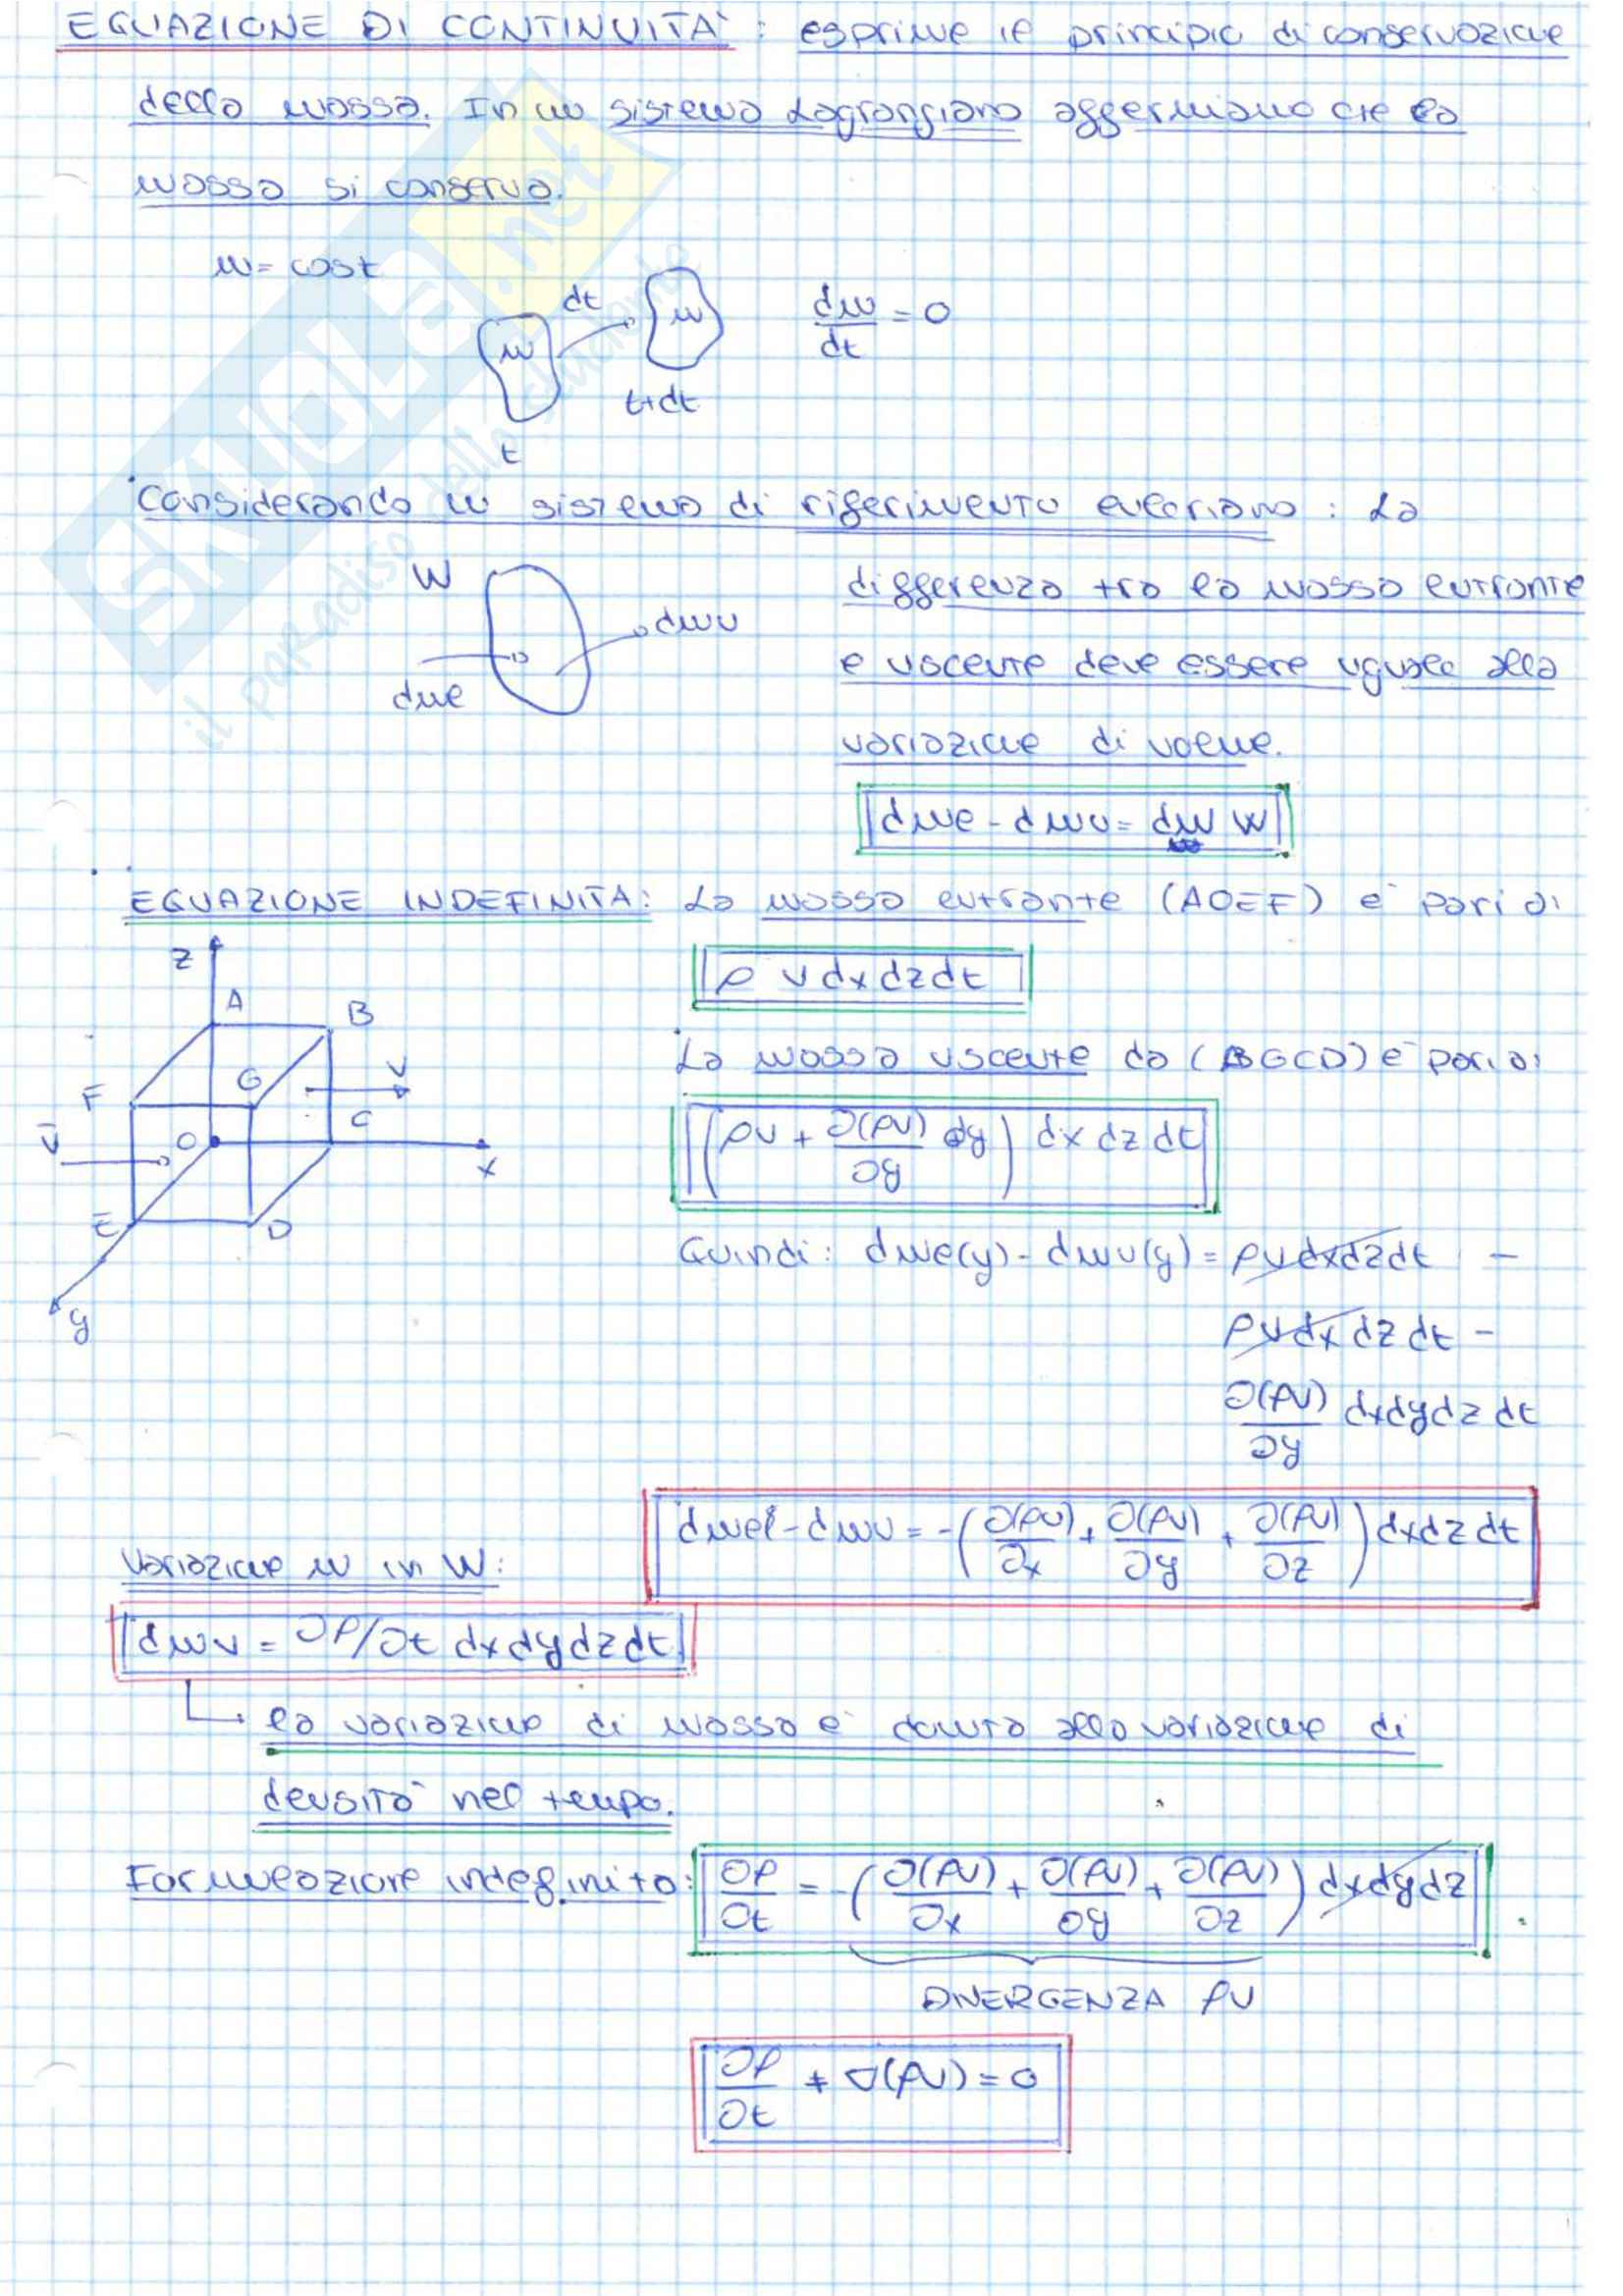 EQUAZIONE DI CONTINUITA' : esprime il principio di conservazione
della massa. In un sistema Lagrangiano affermiamo che la
massa si conserva.
m = cost
dt
m
m
dm/dt = 0
t+dt
t
Considerando un sistema di riferimento euleriano : La
W
differenza tra la massa entrante
dmu
e uscente deve essere uguale alla
dme
variazione di volume.
dme - dmu = dm W
EQUAZIONE INDEFINITA: La massa entrante (AOEF) e' pari a:
z
ρ v dx dz dt
A
B
La massa uscente da (BGCD) e' pari a:
F
G
V
C
(ρv + ∂(ρv)/∂y dy) dx dz dt
V
O
x
E
D
Quindi: dme(y) - dmu(y) = ρv dx dz dt -
y
ρv dx dz dt -
∂(ρv)/∂y dx dy dz dt
dme - dmu = -(∂(ρv)/∂x + ∂(ρv)/∂y + ∂(ρv)/∂z) dx dz dt
Variazione m in W:
dmv = ∂ρ/∂t dx dy dz dt
la variazione di massa e' dovuta alla variazione di
densita' nel tempo.
Formulazione indefinita: ∂ρ/∂t = -(∂(ρv)/∂x + ∂(ρv)/∂y + ∂(ρv)/∂z) dx dy dz
DIVERGENZA ρv
∂ρ/∂t + ∇(ρv) = 0
SKUOLA.net
il paradiso dello studente